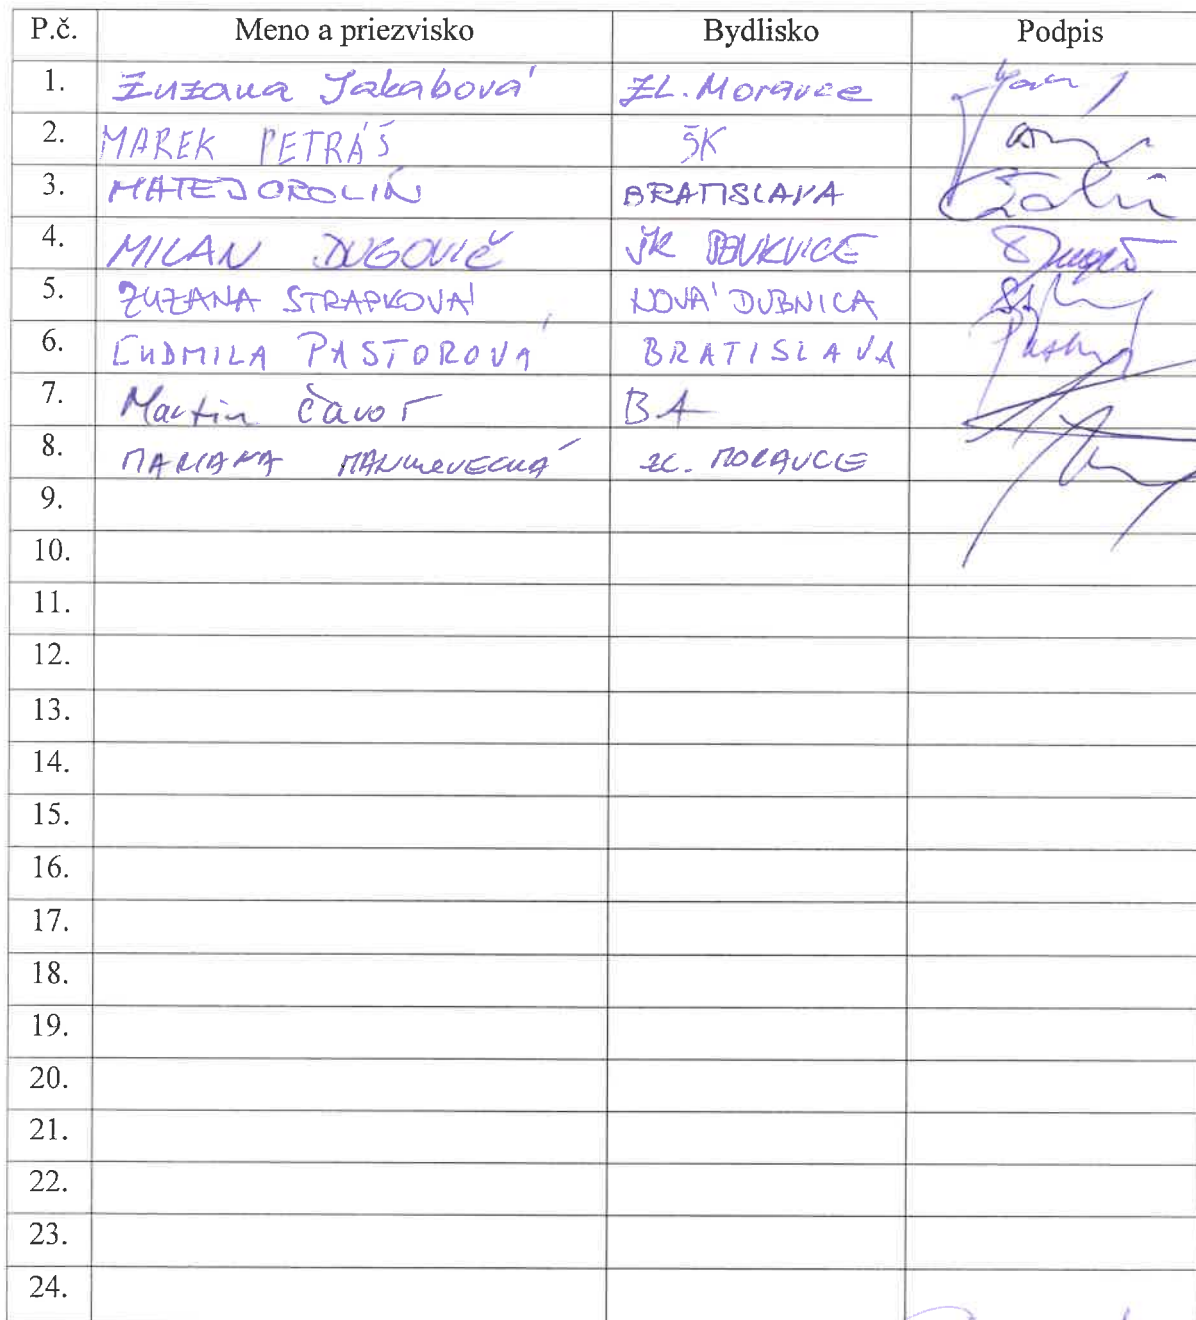 P.č. Meno a priezvisko Bydlisko Podpis
1. Zuzana Jakabová ZL. Moravce
2. MAREK PETRÁŠ ŠK
3. MATEJ OROLÍN BRATISLAVA
4. MILAN DUGOVIČ
5. ZUZANA STRAPKOVÁ NOVÁ DUBNICA
6. ĽUDMILA PASTOROVÁ BRATISLAVA
7. Martin Čavoj BA
8. MARIANA ZL. MORAVCE
9.
10.
11.
12.
13.
14.
15.
16.
17.
18.
19.
20.
21.
22.
23.
24.